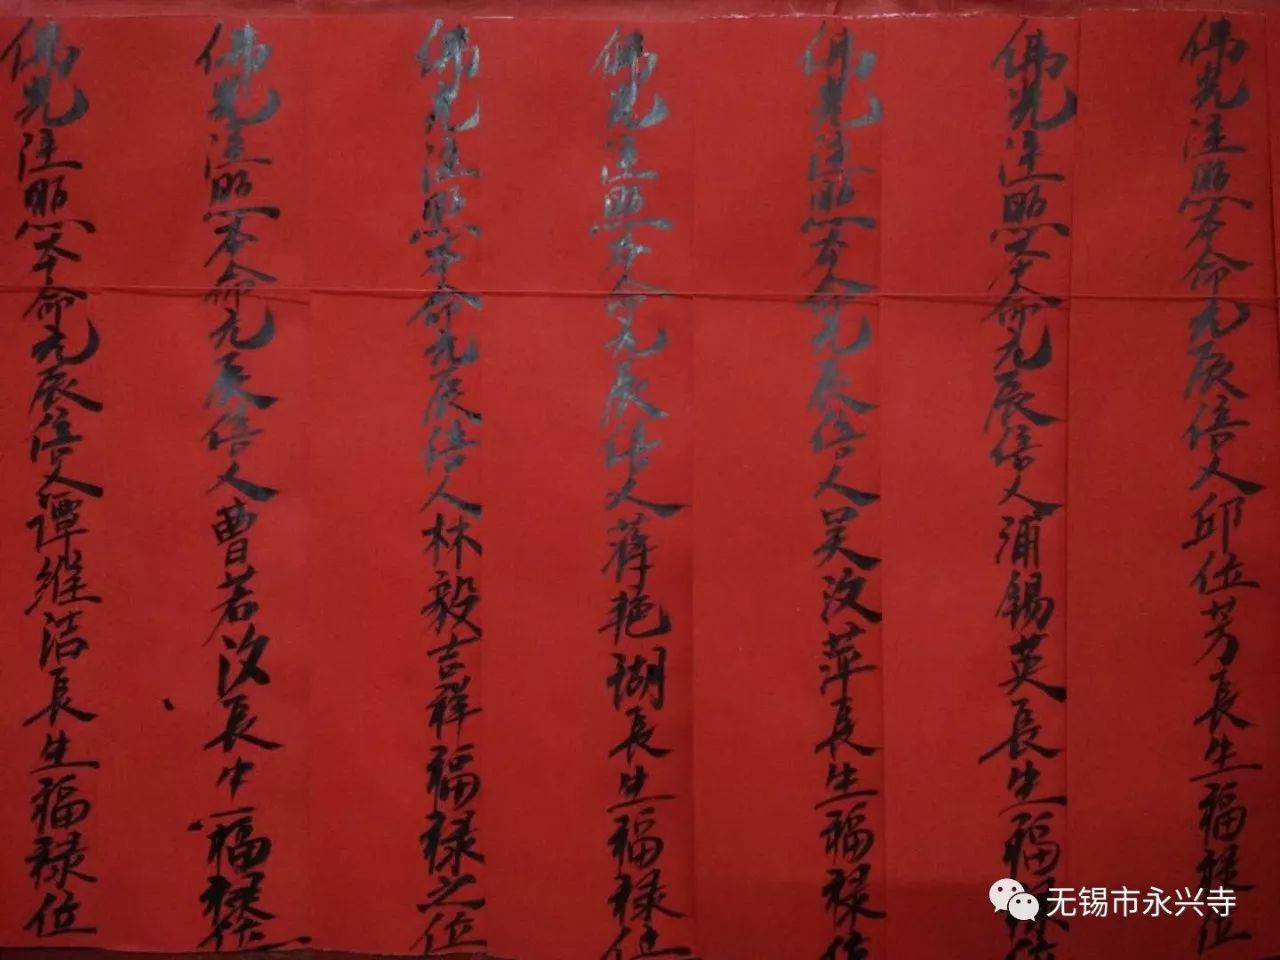 佛光注照本命元辰信人邱位芳長生福祿位
佛光注照本命元辰信人浦錫英長生福祿位
佛光注照本命元辰信人吴汶萍長生福祿位
佛光注照本命元辰信人蒋艳湖長生福祿位
佛光注照本命元辰信人林毅吉祥福祿之位
佛光注照本命元辰信人曹若汐長生福祿位
佛光注照本命元辰信人譚維洁長生福祿位
无锡市永兴寺